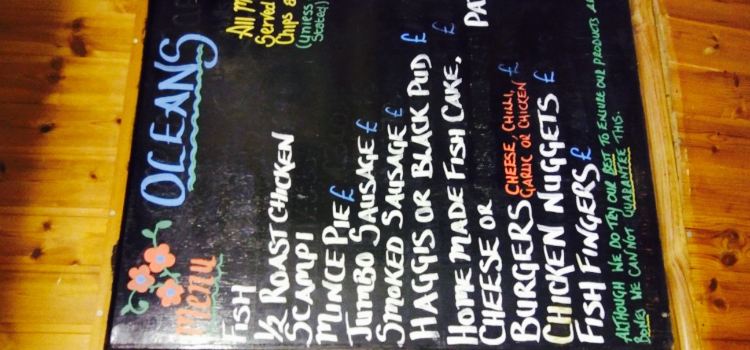 OCEANS
menu
All M
Served
Chips &
(unless
Stated)
FISH
1/2 ROAST CHICKEN
SCAMPI
MINCE PIE £
JUMBO SAUSAGE £
SMOKED SAUSAGE £
HAGGIS OR BLACK PUD £
HOME MADE FISH CAKE, PA
CHEESE OR
BURGERS CHEESE, CHILLI, £
GARLIC OR CHICKEN
CHICKEN NUGGETS £
FISH FINGERS £
ALTHOUGH WE DO TRY OUR BEST TO ENSURE OUR PRODUCTS A
BONES WE CAN NOT GUARANTEE THIS.